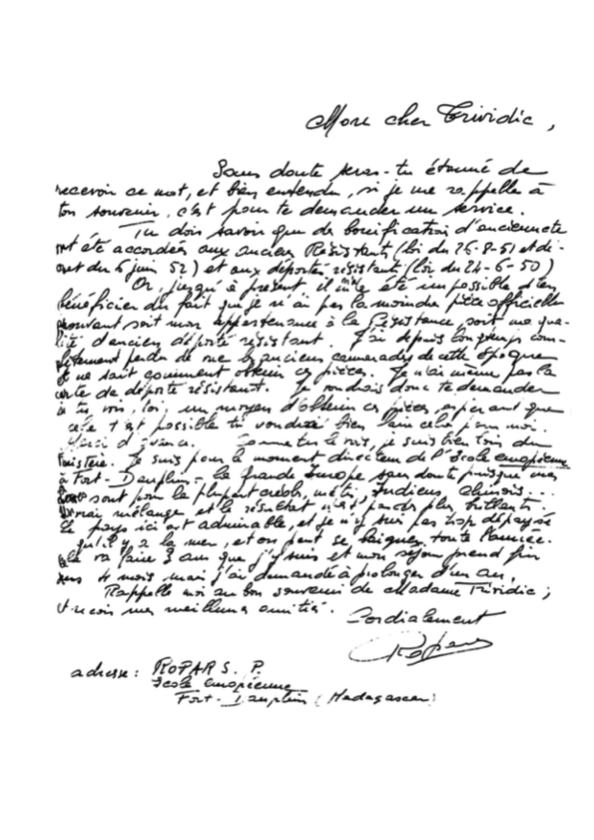 Mon cher Trividic,
Sans doute seras-tu étonné de
recevoir ce mot, et bien entendu, si je me rappelle à
ton souvenir, c'est pour te demander un service.
Tu dois savoir que de bonification d'ancienneté
ont été accordées aux anciens Résistants (loi du 26-8-51 et di-
oret du 6 juin 52) et aux déportés résistants (loi du 24-6-50)
Or, jusqu'à présent il m'a été impossible d'en
bénéficier du fait que je n'ai pas la moindre pièce officielle
prouvant soit mon appartenance à la Résistance soit ma qua-
lité d'ancien déporté résistant. J'ai depuis longtemps com-
plètement perdu de vue les anciens camarades de cette époque
et ne sait comment obtenir ces pièces. Je n'ai même pas la
carte de déporté résistant. Je voudrais donc te demander
si tu vois, toi, un moyen d'obtenir ces pièces, espérant que
cela t'est possible tu voudras bien faire cela pour moi.
Merci d'avance. Comme tu le vois, je suis bien loin du
Finistère. Je suis pour le moment directeur de l'école européenne
à Fort-Dauphin - La grande Europe sans doute puisque mes
sont pour la plupart créoles, métis, Indiens, chinois...
vrai mélange et le résultat n'est pas des plus brillants.
Le pays ici est admirable, et je n'y suis pas trop dépaysé
qu'il y a la mer, et on peut se baigner toute l'année.
Cela va faire 3 ans que j'y suis et mon séjour prend fin
dans 4 mois mais j'ai demandé à prolonger d'un an.
Rappelle moi au bon souvenir de Madame Trividic ;
et reçois mes meilleures amitiés.
Cordialement
Ropars
adresse : ROPARS. P.
Ecole européenne
Fort-Dauphin (Madagascar)